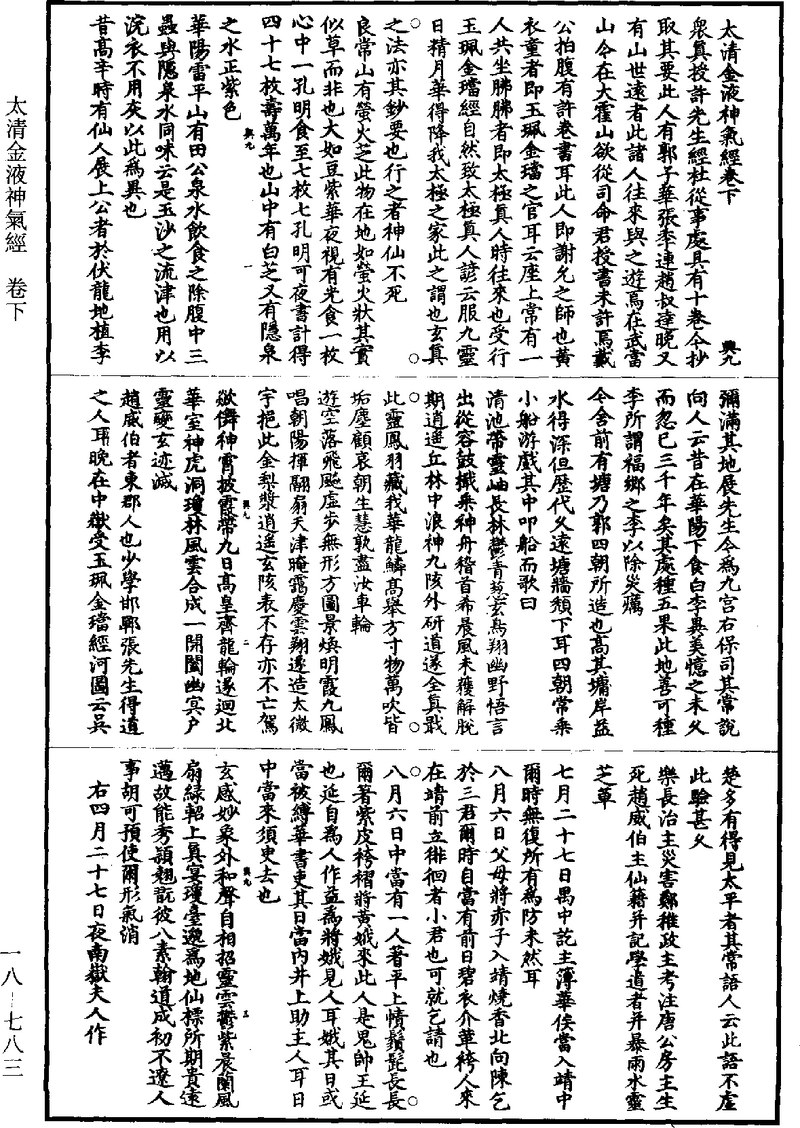 太清金液神氣經卷下
興九
眾真授許先生經杜從事處具有十卷今抄
取其要此人有郭子華張季連趙叔達晚又
有山世遠者此諸人往來與之遊焉在武當
山今在大霍山欲從司命君授書未許焉戴
公拍腹有許卷書耳此人即謝允之師也黃
衣童者即玉珮金璫之官耳云座上常有一
人共坐胇胇者即太極真人時往來也受行
玉珮金璫經自然致太極真人諺云服九靈
日精月華得降我太極之家此之謂也玄真
之法亦其鈔要也行之者神仙不死
良常山有螢火芝此物在地如螢火狀其實
似草而非也大如豆紫華夜視有光食一枚
心中一孔明食至七枚七孔明可夜書計得
四十七枚壽萬年也山中有白芝又有隱泉
之水正紫色
華陽雷平山有田公泉水飲食之除腹中三
蟲與隱泉水同味云是玉沙之流津也用以
浣衣不用灰以此為異也
昔高辛時有仙人展上公者於伏龍地植李
彌滿其地展先生今為九宮右保司其常說
向人云昔在華陽下食白李異美憶之未久
而忽已三千年矣其處種五果此地善可種
李所謂福鄉之李以除災癘
今舍前有塘乃郭四朝所造也高其墉岸益
水得深但歷代久遠塘牆頹下耳四朝常乘
小船游戲其中叩船而歌曰
清池帶靈岫長林鬱青葱玄鳥翔幽野悟言
出從容鼓檝乘神舟稽首希晨風未獲解脫
期逍遙丘林中浪神九陔外研道遂全真戢
此靈鳳羽藏我華龍鱗高舉方寸物萬吹皆
垢塵顧哀朝生蕙孰盡汝車輪
遊空落飛飈虛步無形方圓景煥明霞九鳳
唱朝陽揮翮扇天津晻靄慶雲翔遂造太微
宇挹此金梨漿逍遙玄陔表不存亦不亡駕
欻儛神霄披霞帶九日高皇齊龍輪遂迴北
華室神虎洞瓊林風雲合成一開闔幽冥戶
靈變玄迹滅
趙威伯者東郡人也少學邯鄲張先生得道
之人耳晚在中嶽受玉珮金璫經河圖云吳
楚多有得見太平者其常語人云此語不虛
此驗甚久
樂長治主災害鄭稚政主考注唐公房主生
死趙威伯主仙籍并記學道者并暴雨水靈
芝草
七月二十七日禺中訖主簿華侯當入靖中
爾時無復所有為防未然耳
八月六日父母將赤子入靖燒香北向陳乞
於三君爾時自當有前日碧衣介華袴人來
在靖前立徘徊者小君也可就乞請也
八月六日中當有一人著平上幘鬚髭長長
爾著紫皮袴褶將黃娥來此人是鬼帥王延
也延自為人作益為將娥見人耳娥其日或
當被縛華書吏其日當內井上助主人耳日
中當來須臾去也
玄感妙象外和聲自相招靈雲鬱紫晨蘭風
扇綠軺上真宴瓊臺邈為地仙標所期貴遠
邁故能秀頴翹翫彼八素翰道成初不遼人
事胡可預使爾形氣消
右四月二十七日夜南嶽夫人作
太清金液神氣經　卷下
一八—七八三